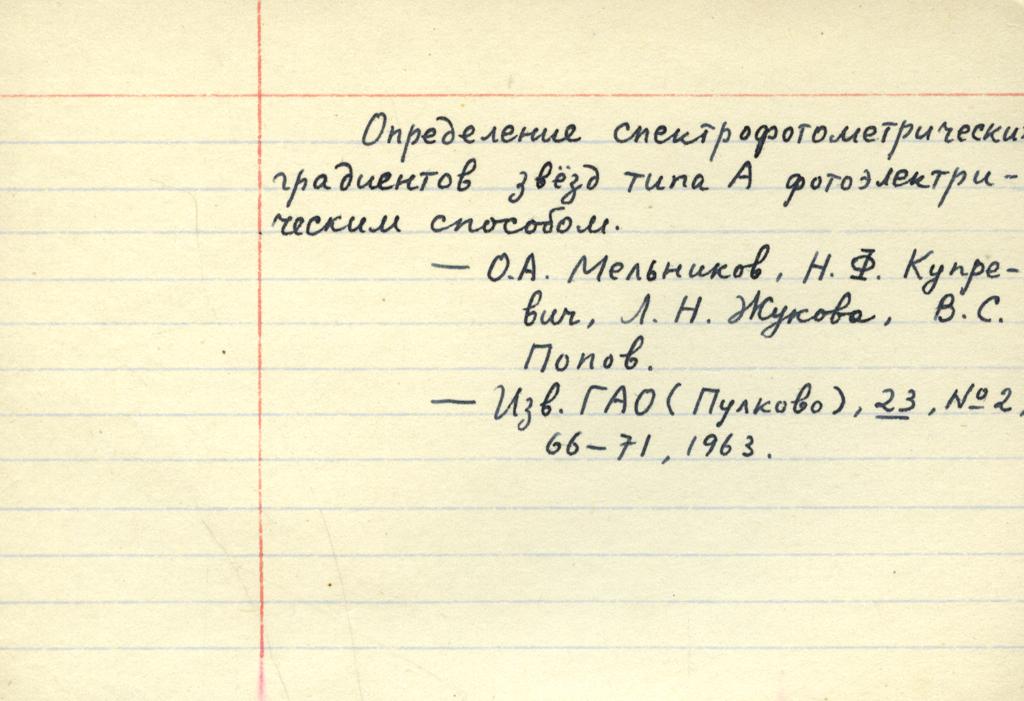 Определение спектрофотометрически
градиентов звёзд типа А фотоэлектри-
ческим способом.
— О.А. Мельников, Н.Ф. Купре-
вич, Л.Н. Жукова, В.С.
Попов.
— Изв. ГАО (Пулково), 23, №2,
66-71, 1963.